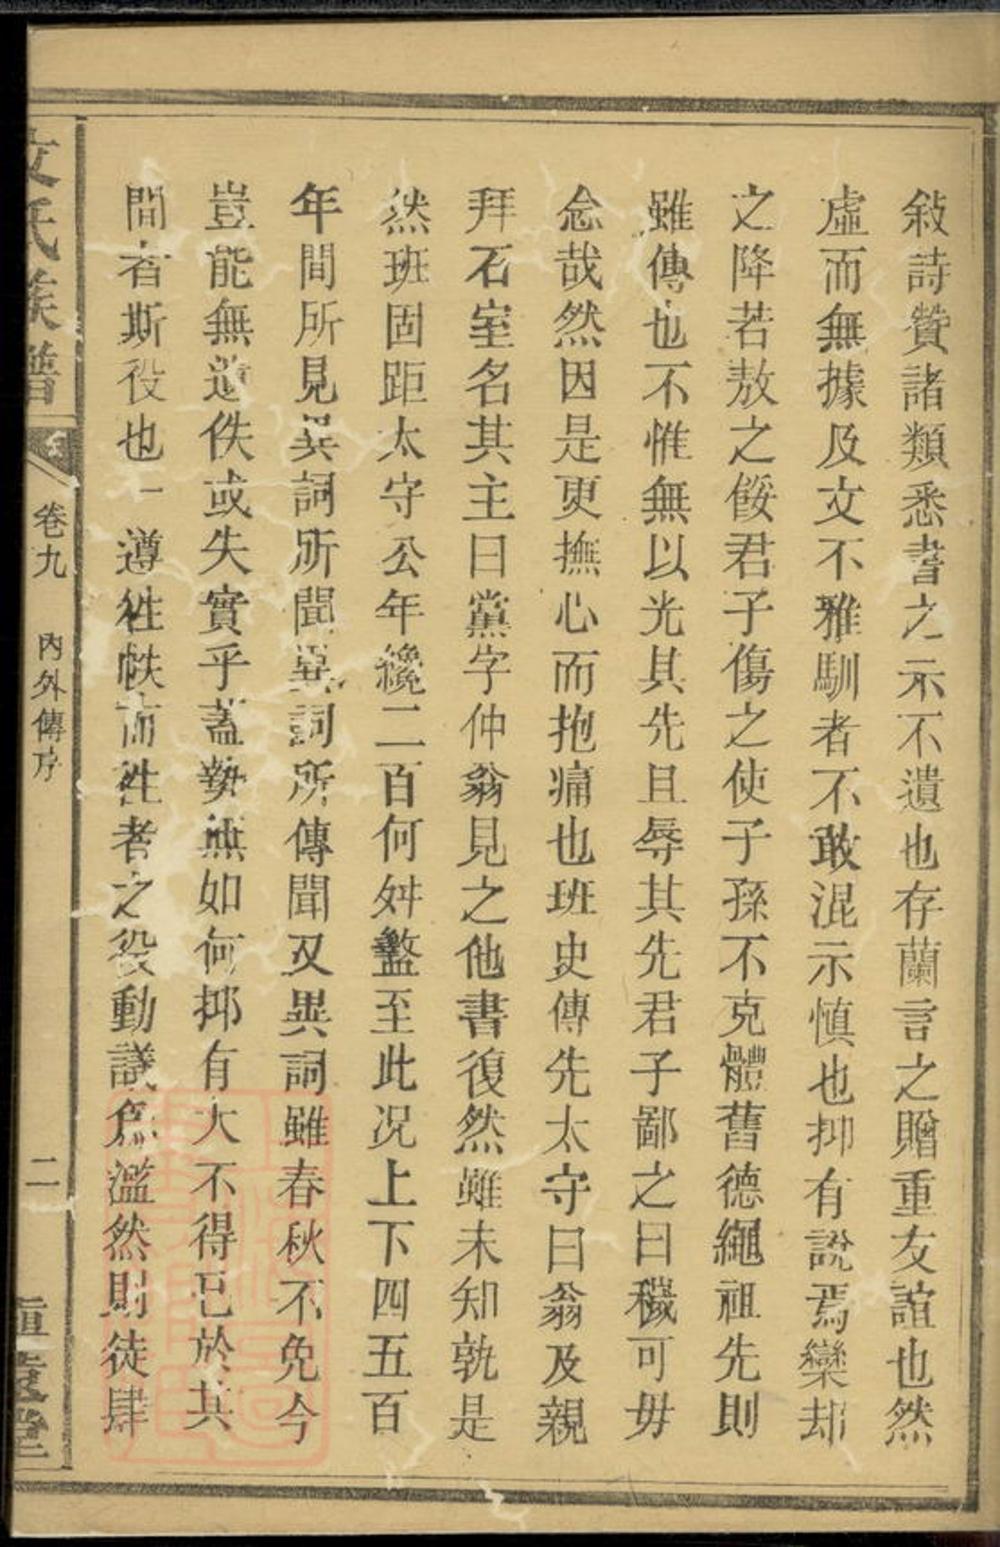 敍詩贊諸類悉書之示不遺也存蘭言之贈重友誼也然
虛而無據及文不雅馴者不敢混示慎也抑有說焉欒却
之降若敖之餒君子傷之使子孫不克體舊德繩祖先則
雖傳也不惟無以光其先且辱其先君子鄙之曰穢可毋
念哉然因是更撫心而抱痛也班史傳先太守曰翁及親
拜石室名其主曰黨字仲翁見之他書復然雖未知孰是
然班固距太守公年纔二百何舛盭至此況上下四五百
年間所見異詞所聞異詞所傳聞又異詞雖春秋不免今
豈能無遺佚或失實乎蓋勢無如何抑有大不得已於其
間者斯役也一遵往帙而往者之役動議多濫然則徒肆
文氏族譜
卷九
內外傳序
二